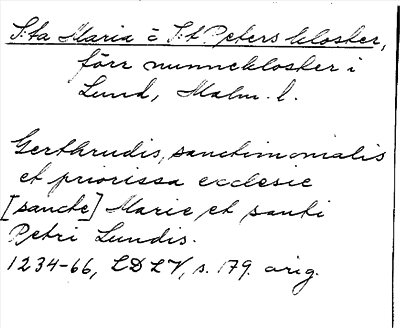 S:ta Maria o S:t Peters kloster,
förr nunnekloster i
Lund, Malm. l.
Gerthrudis, sanctimonialis
et priorissa ecclesie
[sancte] Marie et santi
Petri Lundis.
1234-66, LDLV, s. 179. orig.